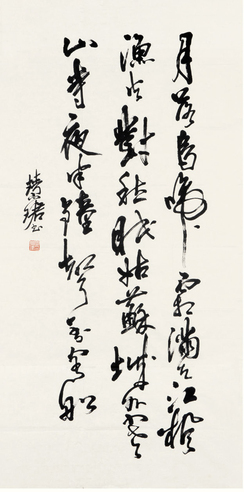 月落烏啼霜滿天江楓
漁火對愁眠姑蘇城外寒
山寺夜半鐘聲到客船